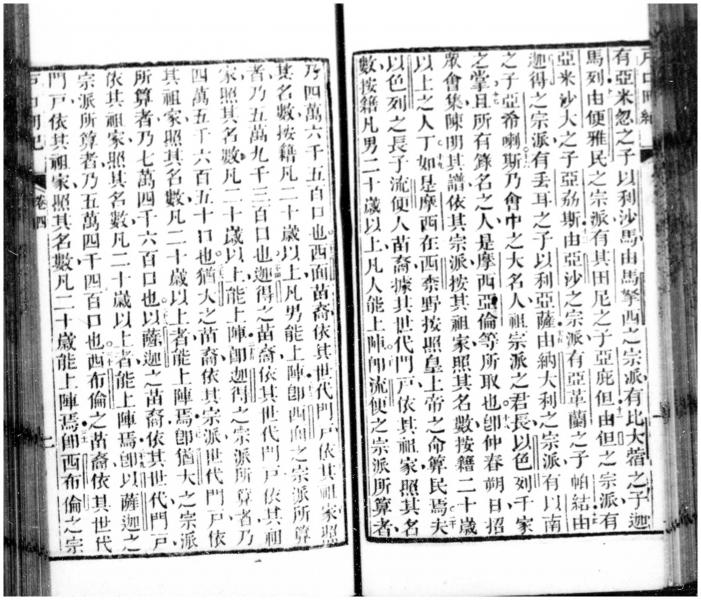 戶口冊紀
有亞米忽之子以利沙馬由馬拿西之宗派有比大蓿之子迦
馬列由便雅民之宗派有其田尼之子亞庇但由但之宗派有
亞米沙大之子亞劦斯由亞沙之宗派有亞革蘭之子帕結由
迦得之宗派有丟耳之子以利亞薩由納大利之宗派有以南
之子亞希喇斯乃會中之大名人祖宗派之君長以色列千家
之掌且所有算名之人是摩西亞倫等所取也卽仲春朔日招
眾會集陳明其譜依其宗派按其祖家照其名數按籍二十歲
以上之人丁如是摩西在西柰野按照皇上帝之命算民焉夫
以色列之長子流便人苗裔據其世代門戶依其祖家照其名
數按籍凡男二十歲以上凡人能上陣卽流便之宗派所算者
乃四萬六千五百口也西面苗裔依其世代門戶依其祖家照
其名數按籍凡二十歲以上凡男能上陣卽西面之宗派所算
者乃五萬九千三百口也迦得之苗裔依其世代門戶依其祖
家照其名數凡二十歲以上能上陣卽迦得之宗派所算者乃
四萬五千六百五十口也猶大之苗裔依其宗派世代門戶依
其祖家照其名數凡二十歲以上者能上陣焉卽猶大之宗派
所算者乃七萬四千六百口也以薩迦之苗裔依其世代門戶
依其祖家照其名數凡二十歲以上者能上陣焉卽以薩迦之
宗派所算者乃五萬四千四百口也西布倫之苗裔依其世代
門戶依其祖家照其名數凡二十歲能上陣焉卽西布倫之宗
戶口冊紀 卷四